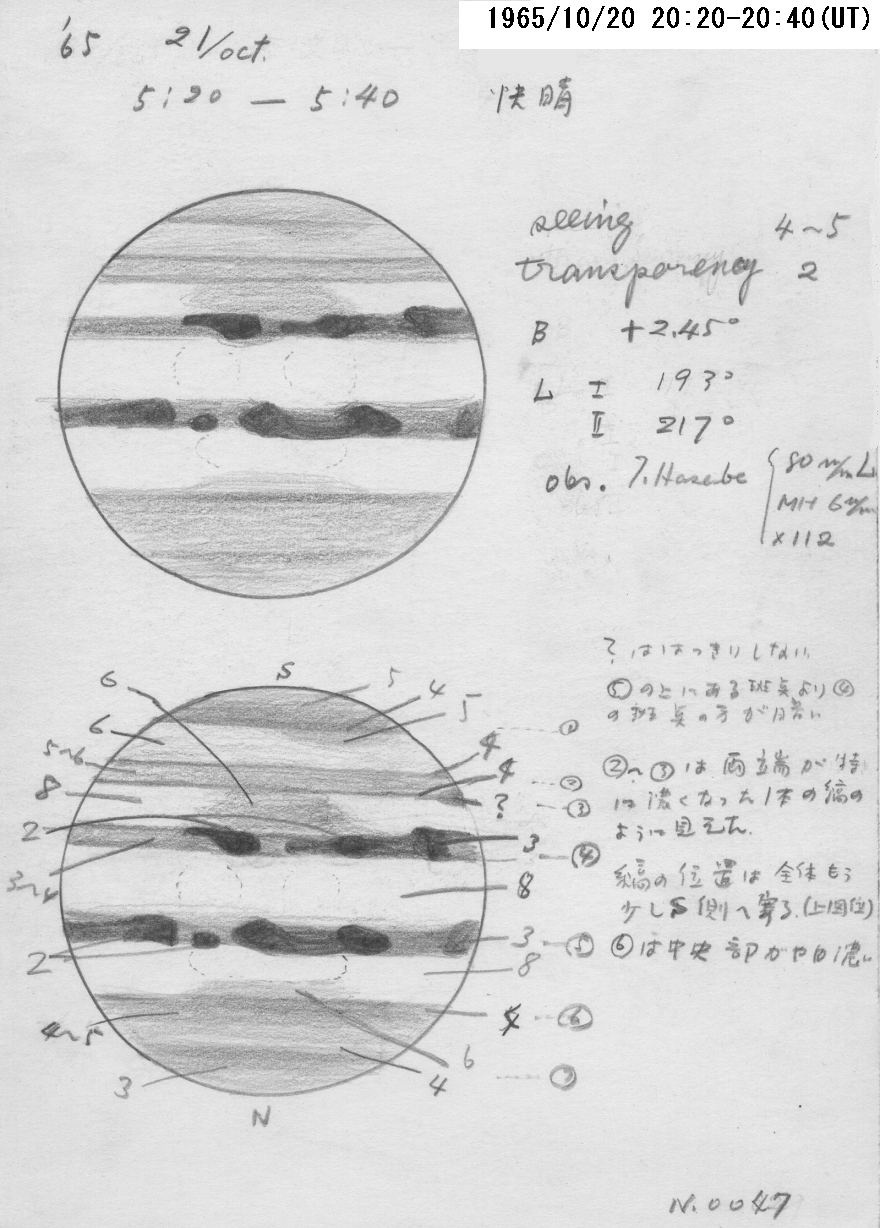 1965/10/20 20:20-20:40(UT)
'65 21/oct.
5:20 — 5:40 快晴
seeing 4~5
transparency 2
B +2.45°
L I 193°
II 217°
obs. T. Hasebe
80 m/m L
MH 6 m/m
×112
?ははっきりしない
⑤の上にある斑点より④
の斑点の方が暗い
②~③は両端が特
に濃くなった1本の縞の
ように見えた.
縞の位置は全体もう
少しS側へ寄る.(上図位)
⑥は中央部がやゝ濃い
S
6
5
4
5
6
5~6
8
2
3~4
2
4~5
3
4
4
?
3
8
3
8
6
4
①
②
③
④
⑤
⑥
⑦
N
N.0047